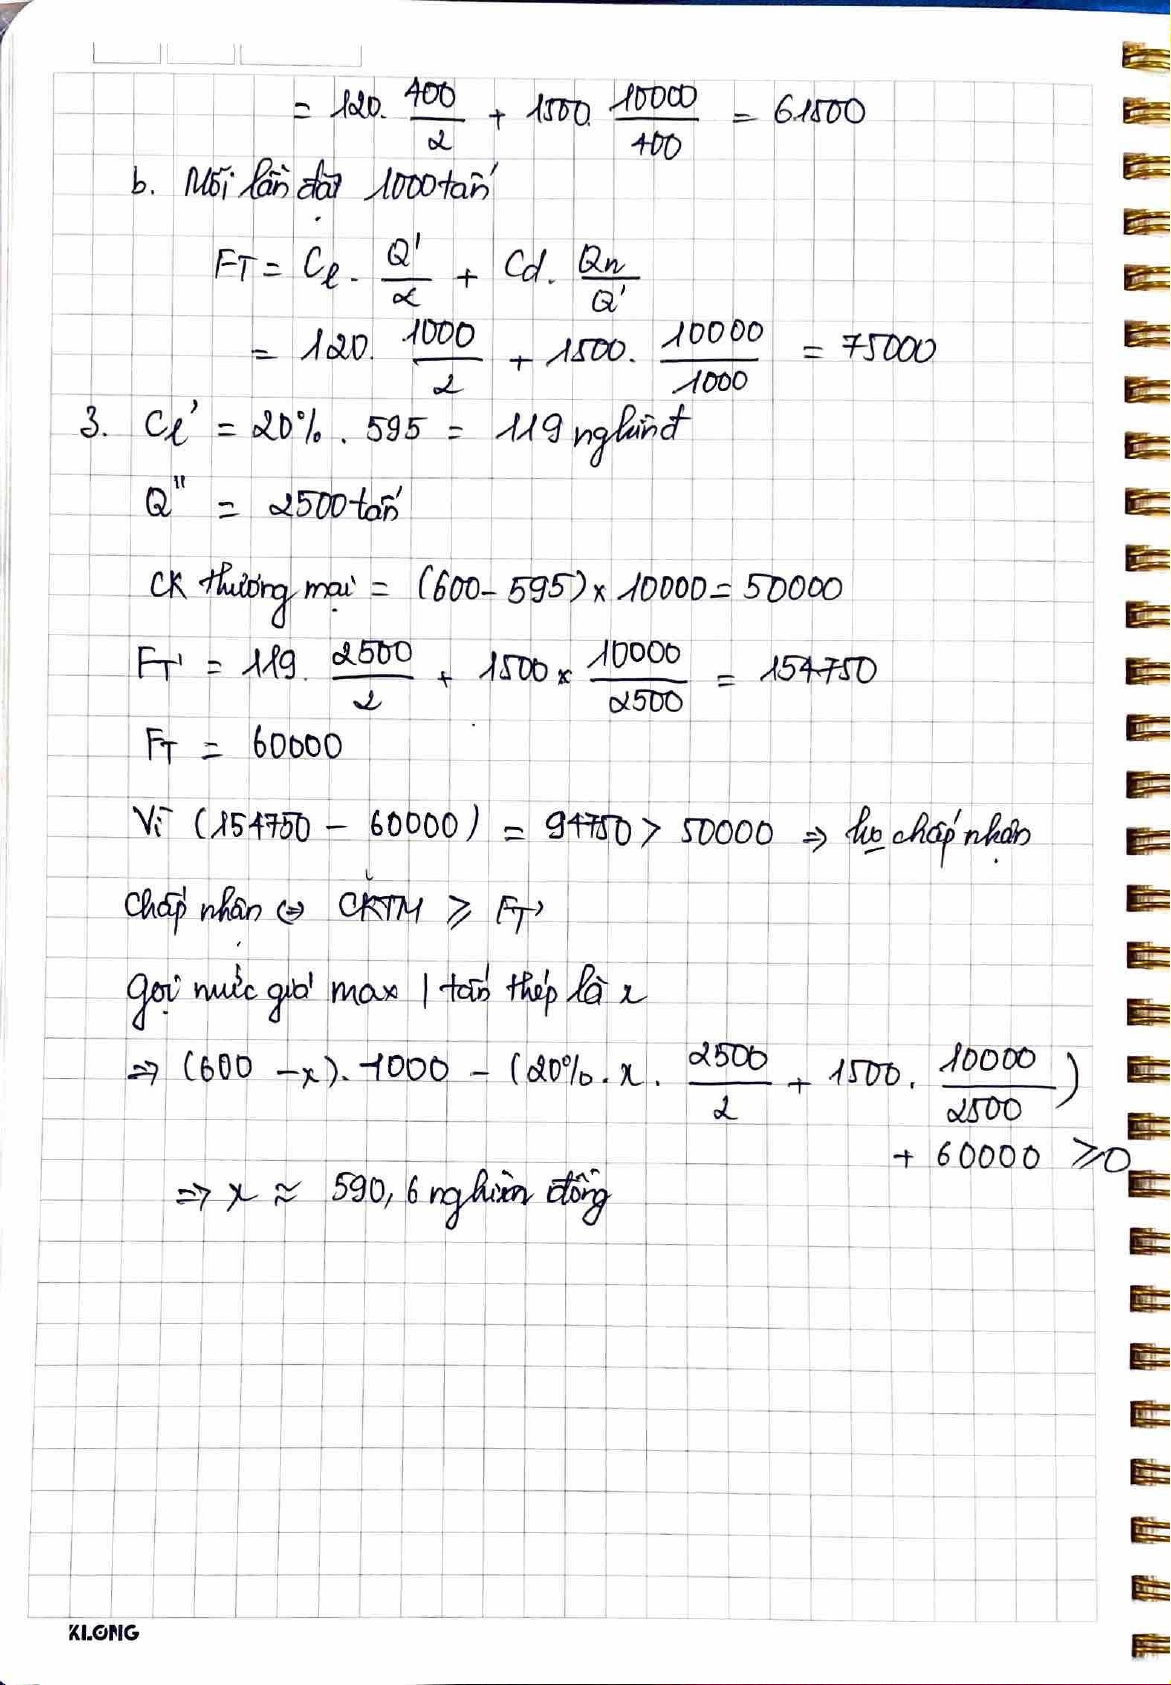 = 120. 400/2 + 1500. 10000/400 = 61500
b. Mỗi lần đặt 1000 tấn
FT = Cl. Q'/2 + Cd. Qn/Q'
= 120. 1000/2 + 1500. 10000/1000 = 75000
3. Cl' = 20%. 595 = 119 nghìn đ
Q" = 2500 tấn
CK thương mại = (600 - 595) x 10000 = 50000
FT' = 119. 2500/2 + 1500 x 10000/2500 = 154750
FT = 60000
Vì (154750 - 60000) = 94750 > 50000 => họ chấp nhận
Chấp nhận <=> CKTM ≥ FT'
gọi mức giá max 1 tấn thép là x
=> (600 - x). 1000 - (20%. x. 2500/2 + 1500. 10000/2500)
+ 60000 ≥ 0
=> x ≈ 590,6 nghìn đồng
KLONG